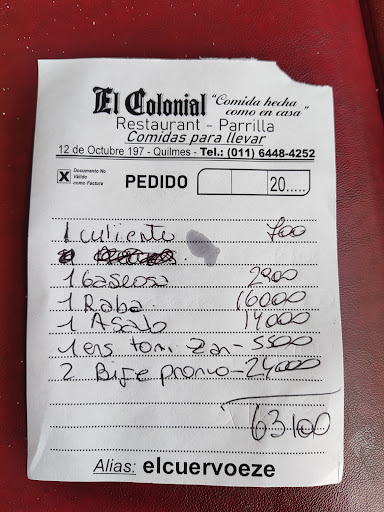 El Colonial "Comida hecha como en casa"
Restaurant - Parrilla
Comidas para llevar
12 de Octubre 197 - Quilmes - Tel.: (011) 6448-4252
X Documento No Válido como Factura PEDIDO 20.....
1 culiento 700
1 Gaseosa 2900
1 Raba 16000
1 Asado 14000
1 ens tom. zan - 5500
2 Bife promo - 24000
63100
Alias: elcuervoeze